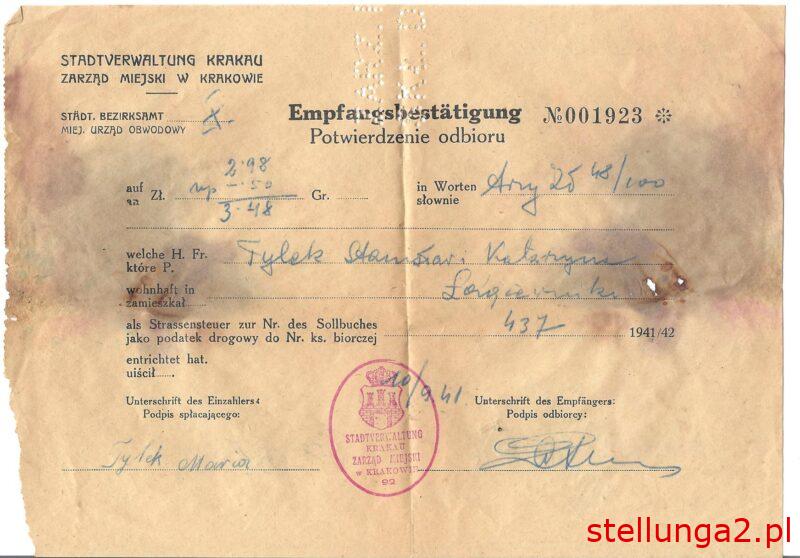 STADTVERWALTUNG KRAKAU
ZARZĄD MIEJSKI W KRAKOWIE
STÄDT. BEZIRKSAMT X
MIEJ. URZĄD OBWODOWY
Empfangsbestätigung №001923 *
Potwierdzenie odbioru
2·98
auf Zł. up -·50 Gr. in Worten trzy Zł 48/100
na słownie
3·48
welche H. Fr. Tylek Stanisław i Katarzyna
które P.
wohnhaft in Łagiewniki
zamieszkał
als Strassensteuer zur Nr. des Sollbuches 437 1941/42
jako podatek drogowy do Nr. ks. biorczej
entrichtet hat.
uiścił
10/9.41
Unterschrift des Einzahlers: Unterschrift des Empfängers:
Podpis spłacającego: Podpis odbiorcy:
STADTVERWALTUNG
KRAKAU
ZARZĄD MIEJSKI
w KRAKOWIE
92
Tylek Maria
stellunga2.pl